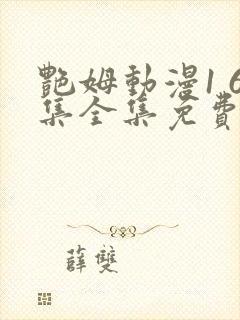 艷姆動漫1 6
集全集免費
薛雙